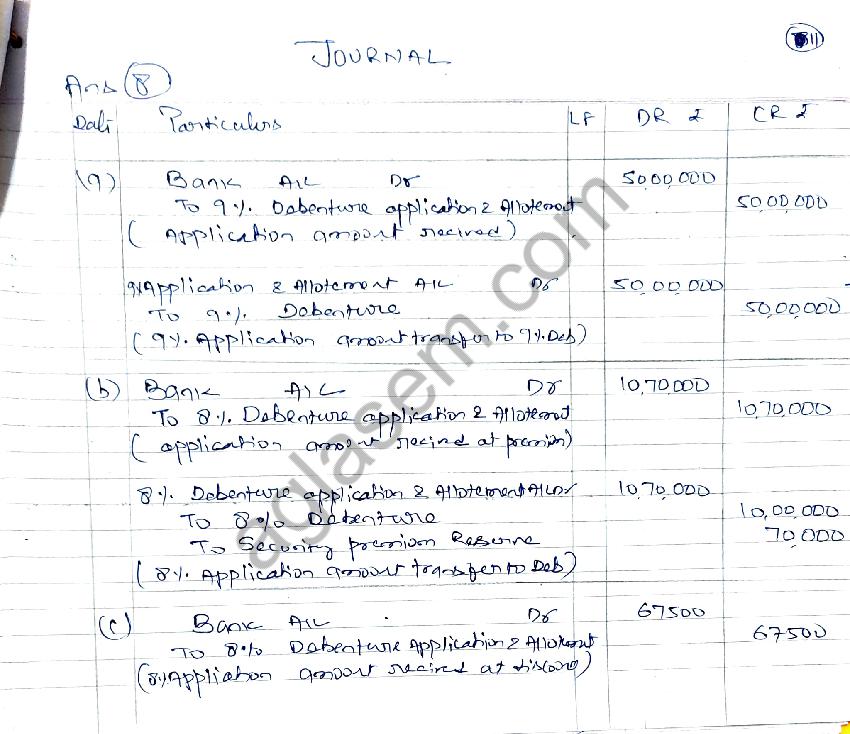 11
JOURNAL
Ans 8
Date Particulars LF DR ₹ CR ₹
(a) Bank A/c Dr 50,00,000
To 9% Debenture application & Allotement 50,00,000
( Application amount recived )
9% Application & Allotement A/c Dr 50,00,000
To 9% Debenture 50,00,000
( 9% Application amount transfer to 9% Deb )
(b) Bank A/c Dr 10,70,000
To 8% Debenture application & Allotement 10,70,000
( application amount recived at premium )
8% Debenture application & Allotement A/c Dr 10,70,000
To 8% Debenture 10,00,000
To Security premium Reserve 70,000
( 8% Application amount transfer to Deb )
(c) Bank A/c Dr 67500
To 8% Debenture Application & Allotement 67500
(8% Appliation amount recived at discount)
aglasem.com